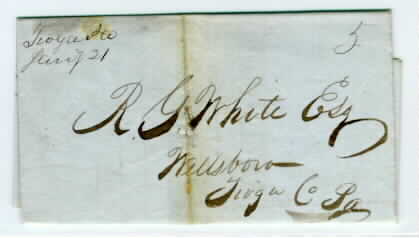 Tioga Pa
Jany 21
5
R. G. White Esq
Wellsboro
Tioga Co Pa